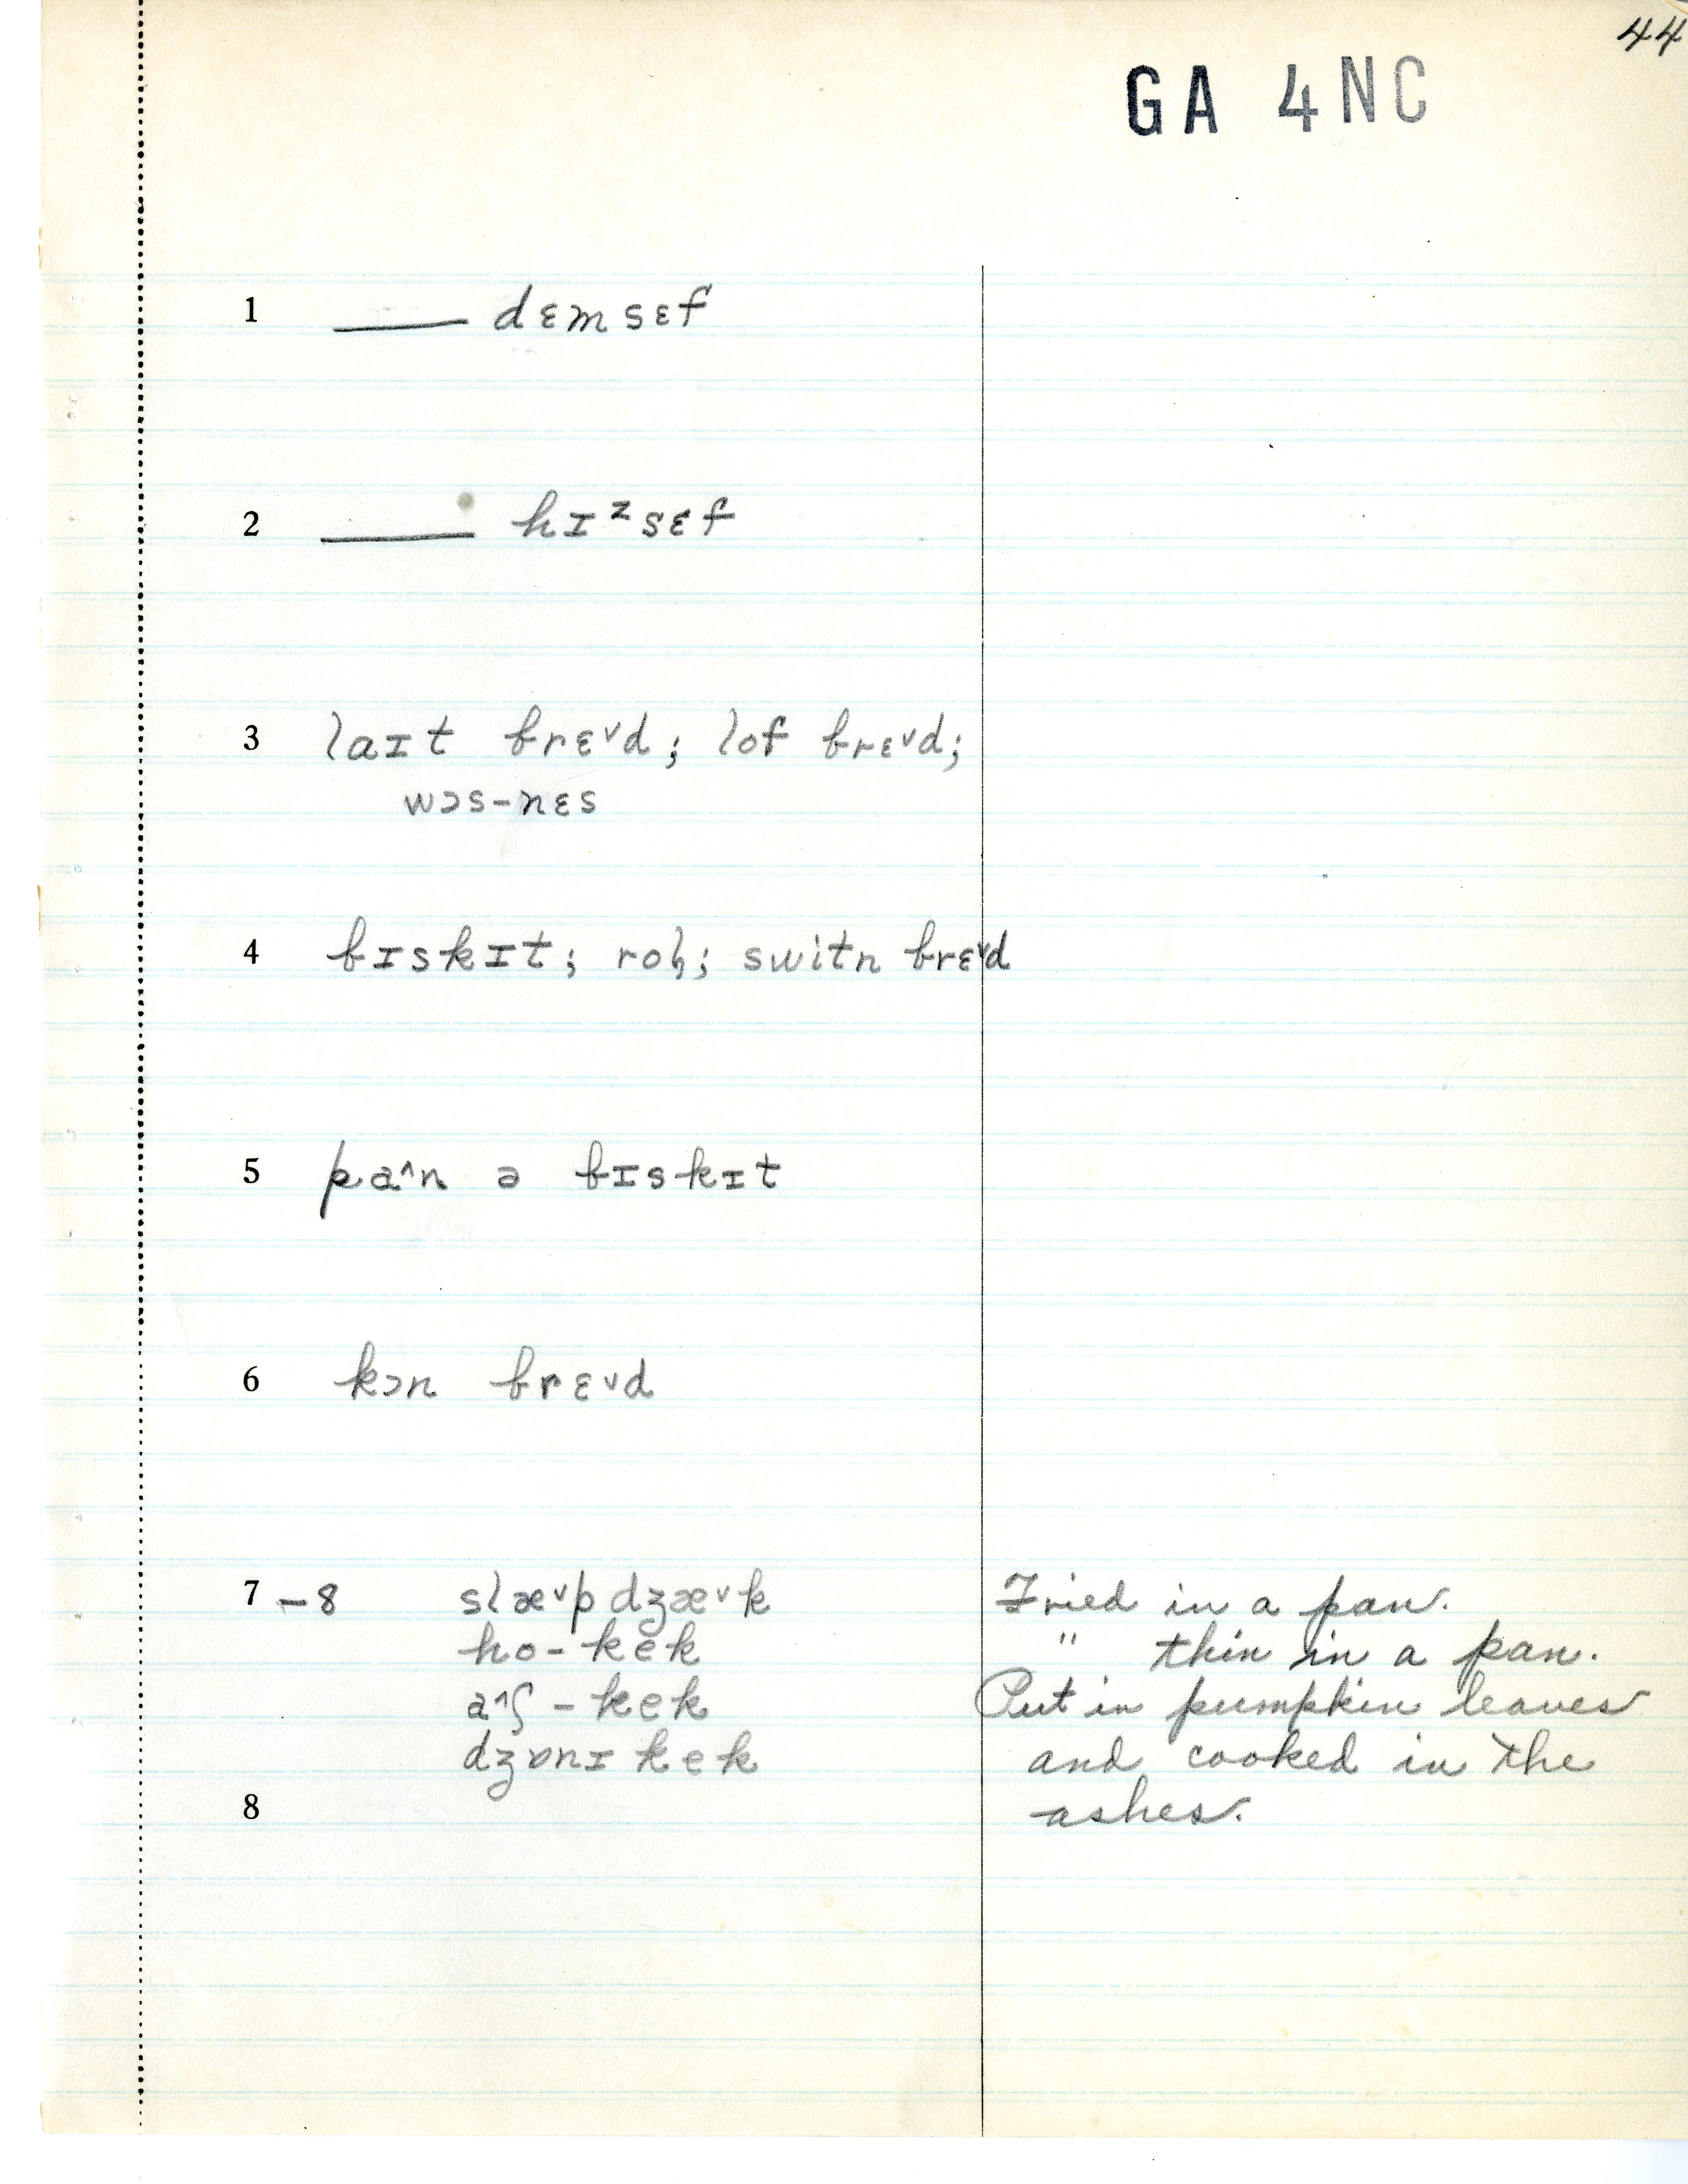 44
GA 4NC
1 ____ dɛmsɛf
2 ____ hɪᶻsɛf
3 laɪt brɛ˅d; lof brɛ˅d;
wɔs-nɛs
4 bɪskɪt; rol̥; switn brɛ˅d
5 pa˄n ə bɪskɪt
6 kɔn brɛ˅d
7 –8 slæ˅p dʒæ˅k Fried in a pan.
ho-kek " thin in a pan.
a˄ʃ-kek Put in pumpkin leaves
dʒɒnɪ kek and cooked in the
8 ashes.